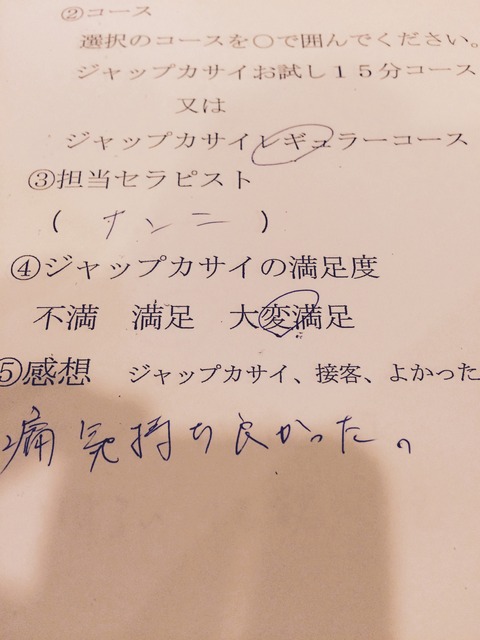 ②コース
選択のコースを○で囲んでください。
ジャップカサイお試し15分コース
又は
ジャップカサイレギュラーコース
③担当セラピスト
( ナンニ )
④ジャップカサイの満足度
不満 満足 大変満足
⑤感想 ジャップカサイ、接客、よかった
痛気持ち良かった。